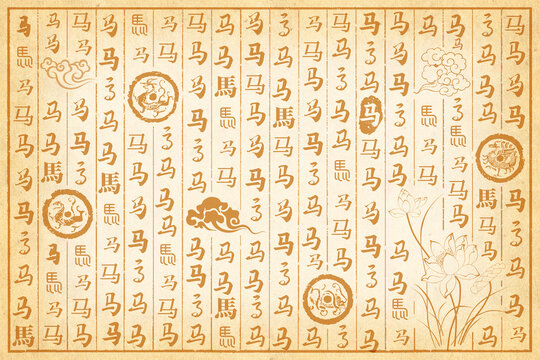 马马马马马马马马马马马
马马马马馬马马马
马马马馬马马马马
马马馬马馬马马
马马马马马马马马马马马
马马马马马马马马马马马
马马马马马马马馬马马
马马马马马马马马马马
马马马马马马马马马
马马马馬马马马马马马马
马马马马马马马马马马马
马马馬马马马马馬马
马马马马马马马马马马
马马马马马马馬马马马
马马马马马马马马马
马马马马馬马马马马马马
马马马马马马马马马
马馬马马马馬马马馬